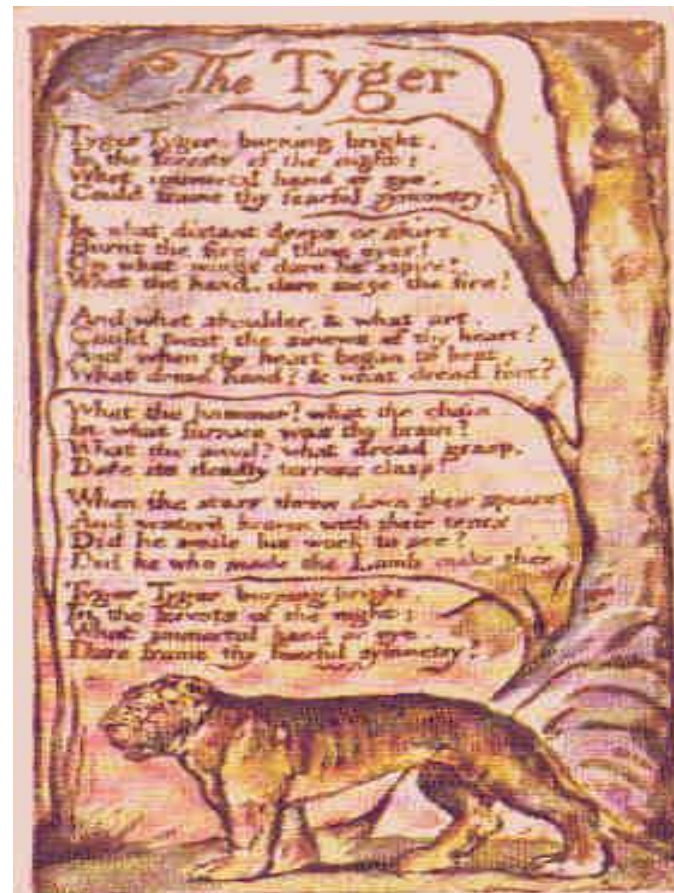 The Tyger
Tyger Tyger, burning bright,
In the forests of the night;
What immortal hand or eye,
Could frame thy fearful symmetry?
In what distant deeps or skies
Burnt the fire of thine eyes?
On what wings dare he aspire?
What the hand, dare sieze the fire?
And what shoulder & what art,
Could twist the sinews of thy heart?
And when thy heart began to beat,
What dread hand? & what dread feet?
What the hammer? what the chain
In what furnace was thy brain?
What the anvil? what dread grasp,
Dare its deadly terrors clasp?
When the stars threw down their spears
And water'd heaven with their tears:
Did he smile his work to see?
Did he who made the Lamb make thee
Tyger Tyger burning bright,
In the forests of the night:
What immortal hand or eye,
Dare frame thy fearful symmetry?